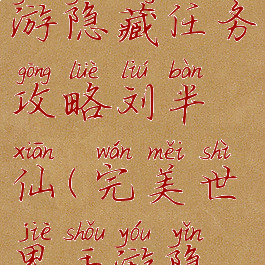 游隐藏任务
gōng lüè liú bàn
攻略刘半
xiān wán měi shì
仙(完美世
jiè shǒu yóu yǐn
界手游隐